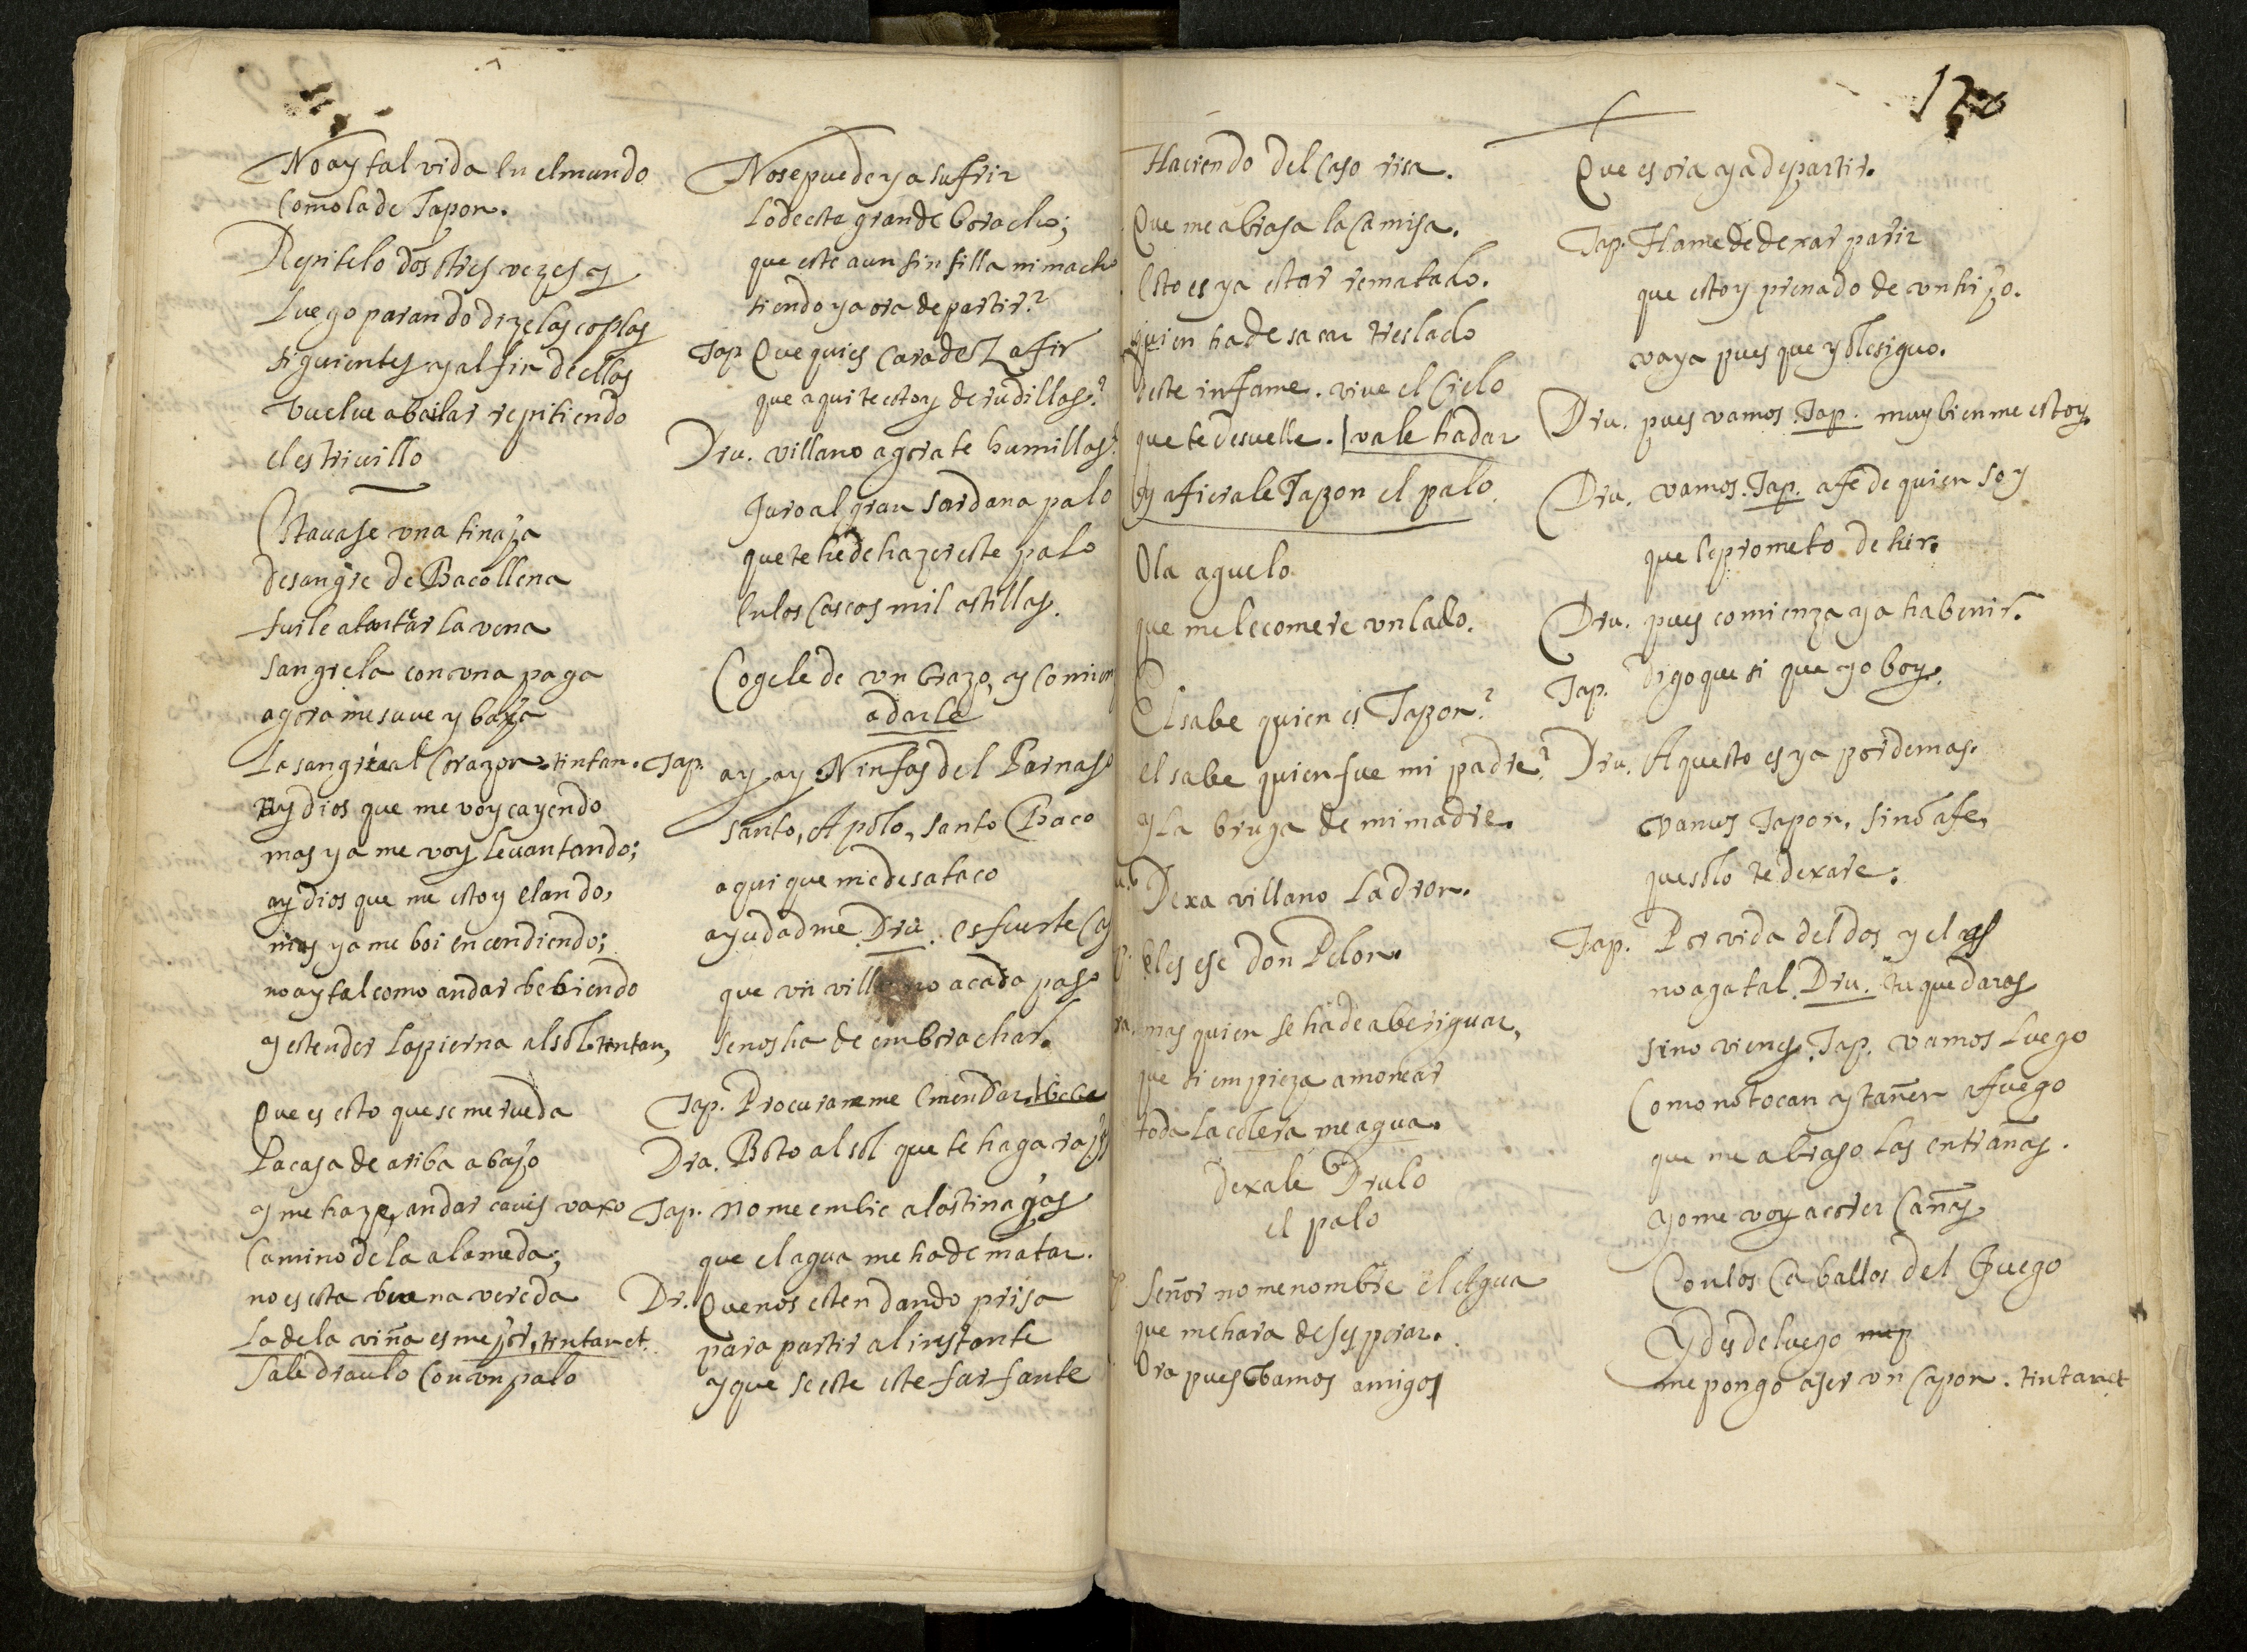 No ay tal vida en el mundo
como la de Tapon.
Repitelo dos o tres vezes y
luego parando dize las coplas
siguientes y al fin de ellas
vuelve a bailar repitiendo
el estriuillo
Estauase vna tinaja
de sangre de Baco llena
fuile a tentar la vena
sangrela con vna paga
agora me suue y baxa
la sangre al corazon. tintan.
ay dios que me voy cayendo
mas ya me voy levantando;
ay dios que me estoy elando,
mas ya me boi encendiendo;
no ay tal como andar bebiendo
y estender la pierna al sol. tintan,
Que es esto que se me rueda
la casa de ariba abajo
y me haze andar caveis vaxo
camino de la alameda;
no es esta buena vereda
la de la viña es mejor, tintan et.
Sale draulo con vn palo
No se puede ya sufrir
lo de este grande boracho;
que esté aun sin silla ni macho
siendo ya ora de partir?
Tap. Que quies cara de Zafir
que aqui te estoy de rudillas?
Dru. villano agora te humillas?
Juro al gran sardana palo
que te he de hazer este palo
en los cascos mil astillas.
Cogele de vn brazo, y comien
a darle
Tap. ay ay Ninfas del Parnaso
santo, Apolo, santo Baco
aqui que me desataco
ayudadme. Dru. es fuerte ca
que vn villano a cada paso
se nos ha de emborachar.
Tap. Procurareme emendar. bebe
Dra. Boto al sol que te haga rajas
Tap. no me embie a las tinajas
que el agua me ha de matar.
Dr. Que nos esten dando prisa
para partir al instante
y que se este este farfante
170
Haciendo del caso risa.
Que me abrasa la camisa.
Esto es ya estar rematado.
quien ha de sacar treslado
deste infame. vive el Cielo
que te desuelle. vale ha dar
y afierale Tapon el palo.
Ola aguelo
que me le comere vn lado.
El sabe quien es Tapon?
el sabe quien fue mi padre?
y la bruga de mi madre.
Dexa villano ladron.
eles ese don Pelon.
mas quien se ha de aberiguar,
que si empieza a monear
toda la colera me agua.
dexale Drulo
el palo
Señor no me nombre el Agua
que me hara desesperar.
Ora pues vamos amigo
Que es ora ya de partir.
Tap. Hame de dexar parir
que estoy prenado de vn hijo.
vaya pues que yo le siguo.
Dru. pues vamos. Tap. muy bien me estoy.
Dru. vamos. Tap. a fe de quien soy
que le prometo de hir.
Dru. pues comienza ya ha benir.
Tap. digo que si que yo boy.
Dru. Aquesto es ya por demas.
vamos Tapon, sino a fe,
que solo te dexare.
Tap. Por vida del dos y el as
no aga tal. Dru. tu quedaras
si no vienes. Tap. vamos luego
Como no tocan y tañen a fuego
que me abraso las entrañas.
yo me voy a corer cañas
Con los caballos del Juego
Y desde luego
me pongo a ser vn capon. tintan et